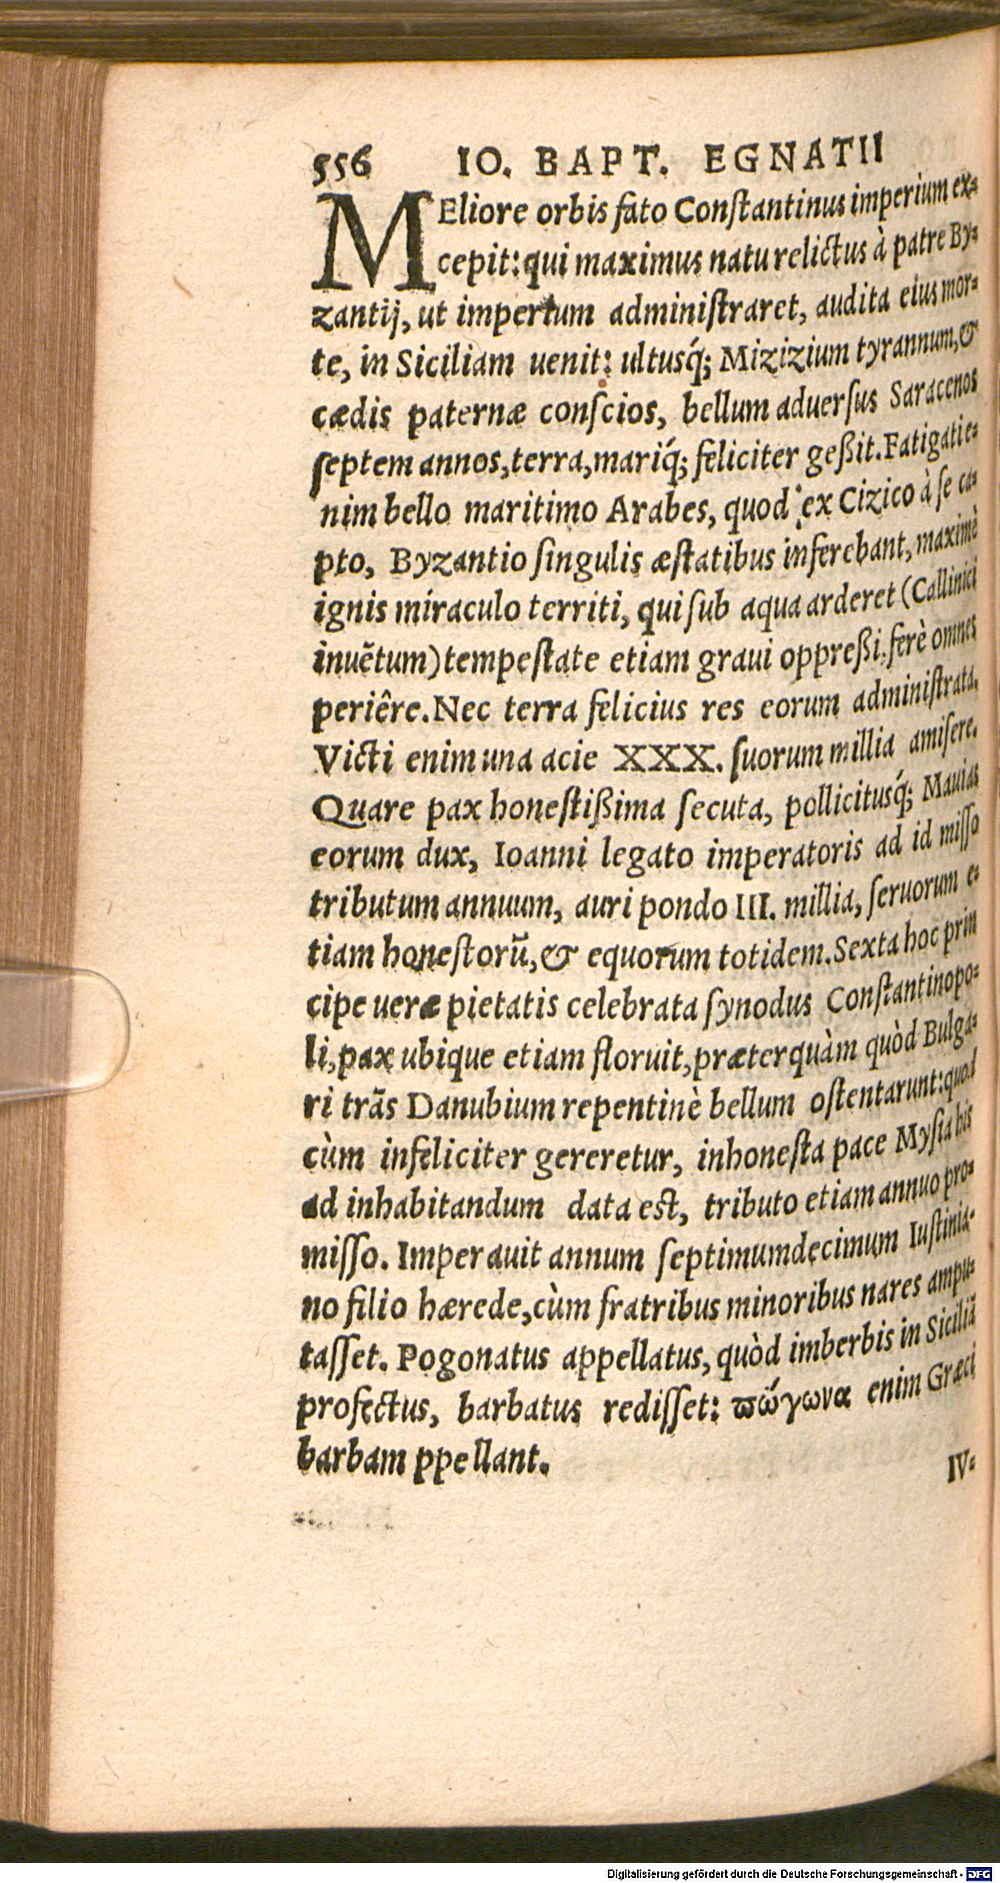 556 IO. BAPT. EGNATII
MEliore orbis fato Conſtantinus imperium ex=
cepit: qui maximus natu relictus à patre By=
zantij, ut imperium adminiſtraret, audita eius mor=
te, in Siciliam uenit: ultusq́; Mizizium tyrannum, &
cædis paternæ conſcios, bellum aduerſus Saracenos
ſeptem annos, terra, mariq́; feliciter geßit. Fatigati e=
nim bello maritimo Arabes, quod ex Cizico à ſe ca=
pto, Byzantio ſingulis æſtatibus inferebant, maximè
ignis miraculo territi, qui ſub aqua arderet (Callinici
inuẽtum) tempeſtate etiam graui oppreßi, ferè omnes
periêre. Nec terra felicius res eorum adminiſtrata.
Victi enim una acie XXX. ſuorum millia amiſere.
Quare pax honeſtißima ſecuta, pollicitusq́; Mauias
eorum dux, Ioanni legato imperatoris ad id miſſo
tributum annuum, auri pondo III. millia, ſeruorum e=
tiam honeſtorũ, & equorum totidem. Sexta hoc prin
cipe ueræ pietatis celebrata ſynodus Conſtantinopo=
li, pax ubique etiam floruit, præterquàm quòd Bulga=
ri trãs Danubium repentinè bellum oſtentarunt: quod
cùm infeliciter gereretur, inhoneſta pace Myſia his
ad inhabitandum data eſt, tributo etiam annuo pro=
miſſo. Imperauit annum ſeptimumdecimum Iuſtinia=
no filio hærede, cùm fratribus minoribus nares ampu=
taſſet. Pogonatus appellatus, quòd imberbis in Siciliã
profectus, barbatus rediſſet: ϖώγωνα enim Græci
barbam ppellant.
IV=
Digitalisierung gefördert durch die Deutsche Forschungsgemeinschaft - DFG